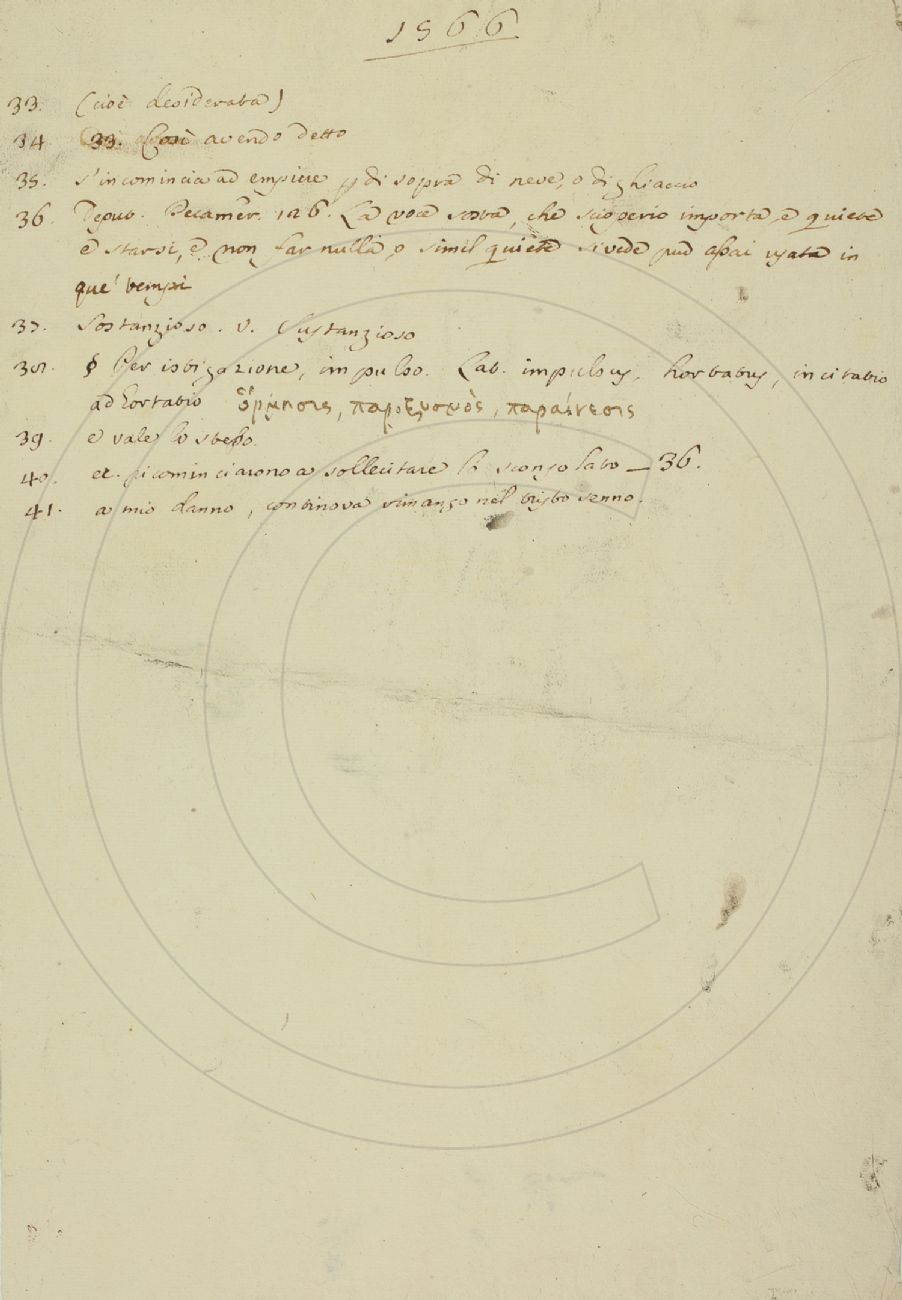 1566
33. (cioè desiderata)
34 33. Così avendo detto
35. s'incomincia ad empiere p di sopra di neve, o di ghiaccio
36. Deput. Decamer. 126. La voce sosta, che scioperio importa, e quiete
e starsi, e non far nulla, o simil quiete si vede pur assai usata in
que' tempi
37. Sostanzioso. v. Sustanzioso
38. § Per istigazione, impulso. Lat. impulsus, hortatus, incitatio
adhortatio ὅρμησις, παροξυσμὸς, παραίνεσις
39. e vale lo stesso
40. et. picominciarono a sollecitare lo sconsolato — 36.
41. a mio danno, continova rimango nel tristo senno.